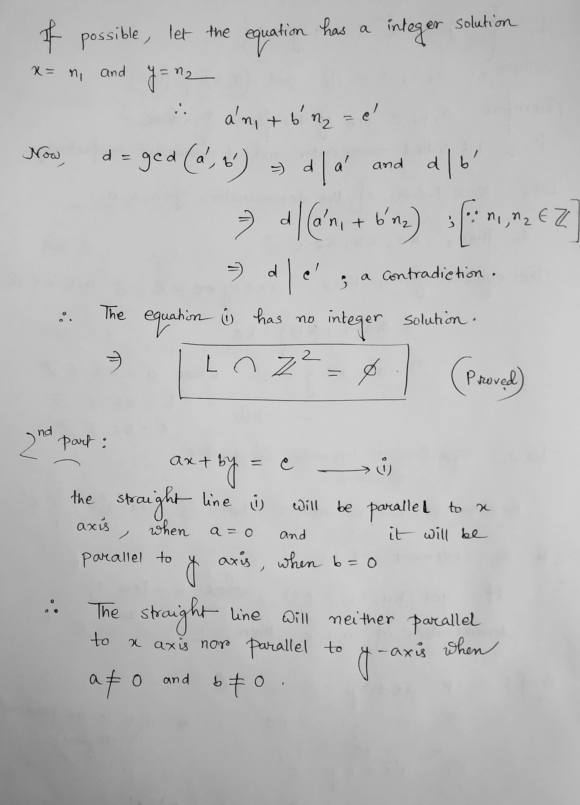 If possible, let the equation has a integer solution
x = n₁ and y = n₂
∴ a'n₁ + b'n₂ = c'
Now, d = gcd (a', b') ⇒ d | a' and d | b'
⇒ d | (a'n₁ + b'n₂) ; [∵ n₁, n₂ ∈ ℤ]
⇒ d | c' ; a contradiction.
∴ The equation (i) has no integer solution.
⇒ L ∩ ℤ² = ∅ (Proved)
2nd part :
ax + by = c ⟶ (i)
the straight line (i) will be parallel to x
axis, when a = 0 and it will be
parallel to y axis, when b = 0
∴ The straight line will neither parallel
to x axis nor parallel to y-axis when
a ≠ 0 and b ≠ 0.